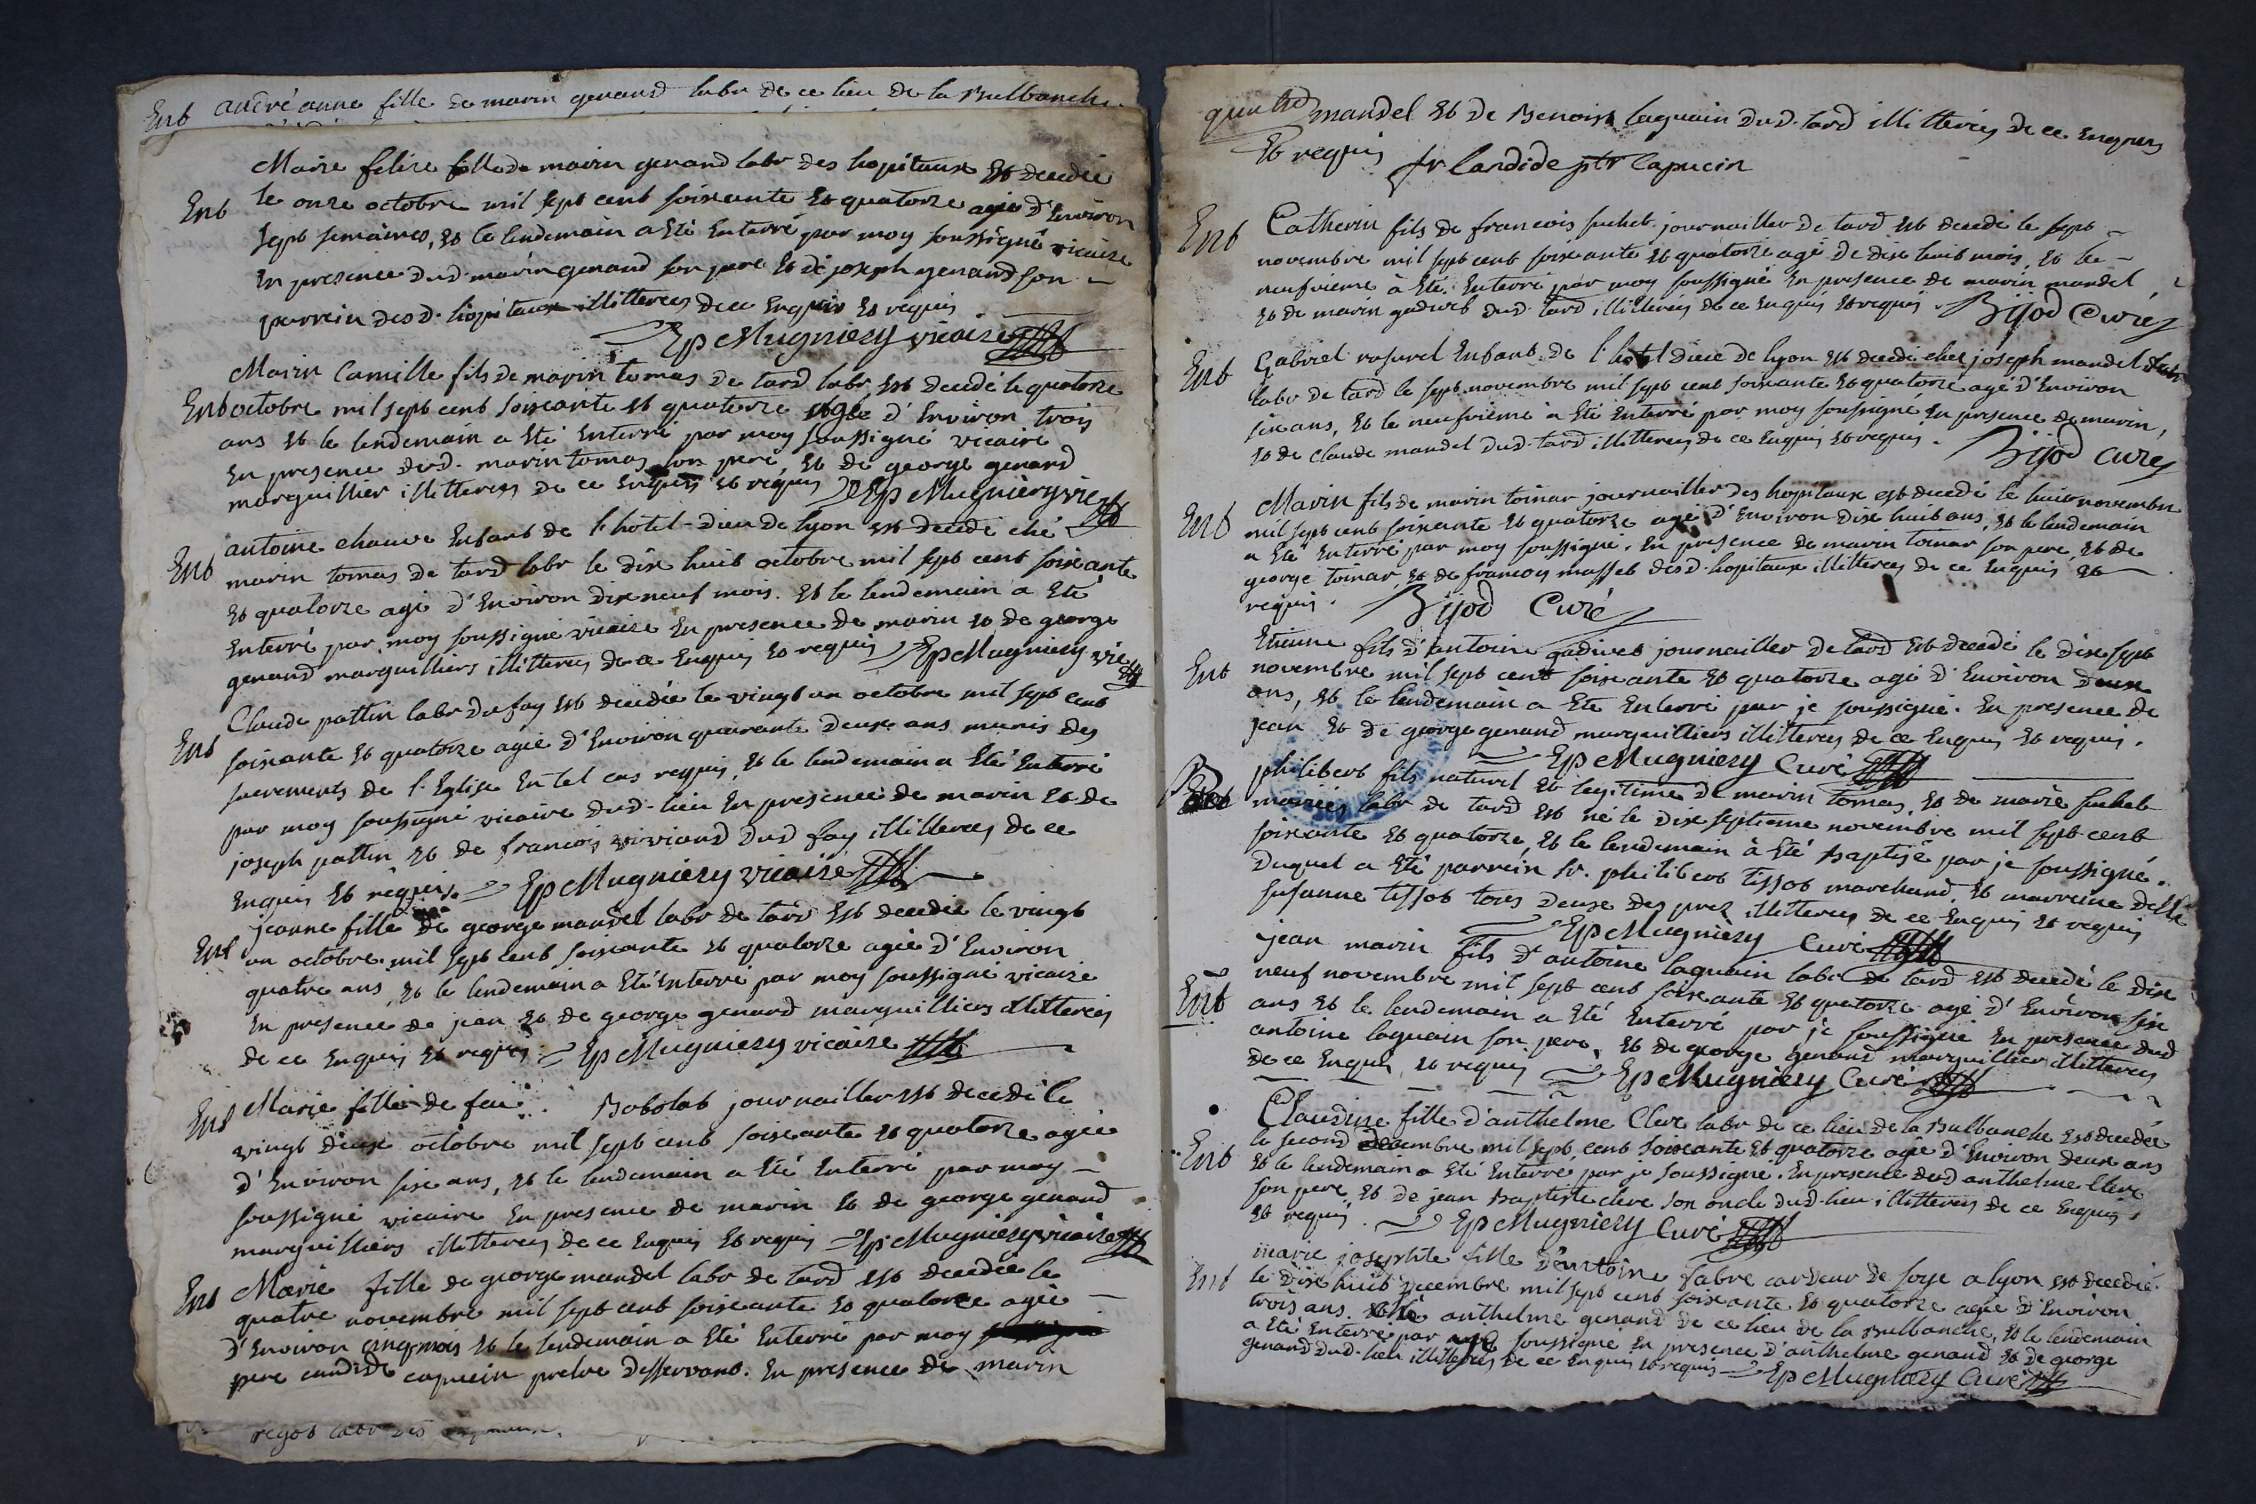 Ent andré anne fille de marin genand labr de ce lieu de la Balbanche
Marie felise fille de marin genand labr des hopitaux est decedée
Ent le onze octobre mil sept cent soixante et quatorze agée d'Environ
sept semaines, et le lendemain a Eté Enterré par moy soussigné vicaire
En presence dud. marin genand son pere et de joseph genand son
parrein desd. hopitaux illitterez de ce Enquis et requis
Ep Mugniery vicaire
Marin Camille fils de marin tomas de tard labr est decedé le quatorze
Ent octobre mil sept cent soixante et quatorze agé d'Environ trois
ans et le lendemain a Eté Enterré par moy soussigné vicaire
En presence dud. marin tomas son pere, et de george genand
marguillier illitterez de ce Enquis et requis Ep Mugniery vic
antoine chauve Enfant de l'hotel-dieu de lyon est decedé ché
Ent marin tomas de tard labr le dix huit octobre mil sept cent soixante
et quatorze agé d'Environ dix neuf mois. Et le lendemain a Eté
Enterré par moy soussigné vicaire En presence de marin et de george
genand marguilliers illitterez de ce Enquis et requis Ep Mugniery vic
Claude pattin labr du fay est decedée le vingt un octobre mil sept cent
Ent soixante et quatorze agée d'Environ quarante deux ans munis des
sacrements de l'Eglise En tel cas requis, et le lendemain a Eté Enterré
par moy soussigné vicaire dud. lieu En presence de marin et de
joseph pattin et de francois viviand dud fay illitterez de ce
Enquis et requis. Ep Mugniery vicaire
jeanne fille de george mandel labr de tard est decedée le vingt
Ent un octobre mil sept cent soixante et quatorze agée d'Environ
quatre ans, et le lendemain a Eté Enterré par moy soussigné vicaire
En presence de jean et de george genand marguilliers illitterez
de ce Enquis et requis. Ep Mugniery vicaire
Ent Marie fille de feu Bobolat journaillier est decedé le
vingt deux octobre mil sept cent soixante et quatorze agée
d'Environ six ans, et le lendemain a Eté Enterré par moy
soussigné vicaire En presence de marin et de george genand
marguilliers illitterez de ce Enquis et requis Ep Mugniery vicaire
Ent Marie fille de george mandel labr de tard est decedée le
quatre novembre mil sept cent soixante et quatorze agée
d'Environ cinq mois et le lendemain a Eté Enterré par moy
pere candide capucin pretre desservant. En presence de marin
labr des
mandel et de Benoist laguain dud. tard illitterez de ce Enquis
et requis fr Candide ptr Capucin
Ent Catherin fils de francois suchet journaillier de tard est decedé le sept
novembre mil sept cent soixante et quatorze agé de dix huit mois, et le
neufvieme à Eté Enterré par moy soussigné En presence de marin mandel
et de marin gadivet dud. tard illitterés de ce Enquis et requis. Bijod Curé
Ent Gabriel rosurel Enfant de l'hotel dieu de lyon est decedé chez joseph mandel
labr de tard le sept novembre mil sept cent soixante et quatorze agé d'Environ
six ans, et le neufvieme a Eté Enterré par moy soussigné En presence de marin,
et de claude mandel dud. tard illitterez de ce Enquis et requis. Bijod curé
Ent Marin fils de marin toinar journaillier des hopitaux est decedé le huit novembre
mil sept cent soixante et quatorze agé d'Environ dix huit ans, et le lendemain
a Eté Enterré par moy soussigné. En presence de marin toinar son pere et de
george toinar et de francois masset desd. hopitaux illitterez de ce Enquis et
requis. Bijod Curé
Etienne fils d'antoine gadivet journaillier de tard est decedé le dix sept
Ent novembre mil sept cent soixante et quatorze agé d'Environ deux
ans, et le lendemain a Eté Enterré par je soussigné. En presence de
jean et de george genand marguilliers illitterez de ce Enquis et requis.
Ep Mugniery Curé
philibert fils naturel et legitime de marin tomas, et de marie suchet
mariés labr de tard est né le dix septieme novembre mil sept cent
soixante et quatorze, et le lendemain à Eté baptisé par je soussigné.
Duquel a Eté parrein sr. philibert tissot marchand, et marreine delle
susanne tissot tous deux des prez illitterez de ce Enquis et requis
Ep Mugniery Curé
jean marin fils d'antoine laguain labr de tard est decedé le dix
Ent neuf novembre mil sept cent soixante et quatorze agé d'Environ six
ans et le lendemain a Eté Enterré par je soussigné En presence dud
antoine laguain son pere, et de george genand marguillier illitterez
de ce Enquis et requis Ep Mugniery Curé
Claudine fille d'anthelme Clerc labr de ce lieu de la Balbanche est decedée
Ent le second decembre mil sept cent soixante et quatorze agée d'Environ deux ans
et le lendemain a Eté Enterré par je soussigné. En presence dud anthelme Clerc
son pere, et de jean baptiste clerc son oncle dud. lieu illitterez de ce Enquis
et requis. Ep Mugniery Curé
marie josephte fille d'antoine fabre cardeur de soye a lyon est decedée
Ent le dix huit decembre mil sept cent soixante et quatorze agée d'Environ
trois ans. ché anthelme genand de ce lieu de la Balbanche, et le lendemain
a Eté Enterré par je soussigné En presence d'anthelme genand et de george
genand dud. lieu illitterés de ce Enquis et requis Ep Mugniery Curé